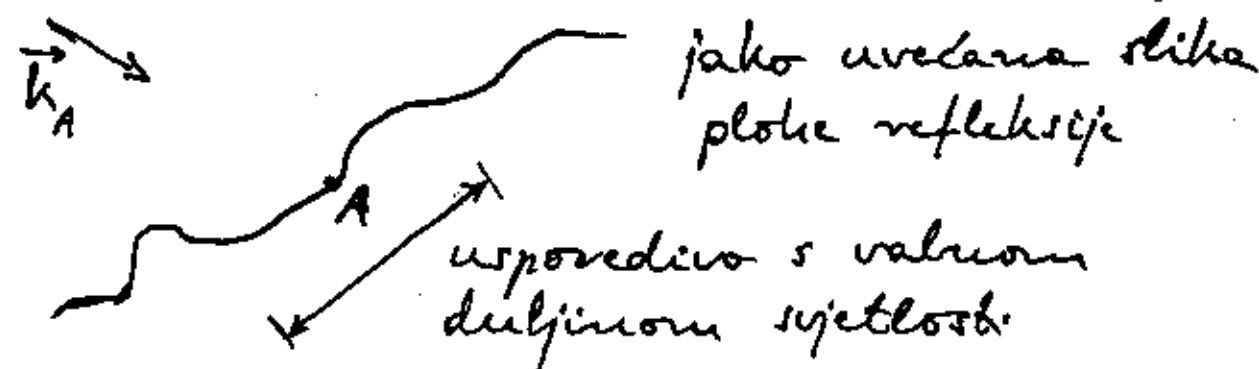 jako uvećana slika
plohe refleksije
k_A
A
usporedivo s valnom
duljinom svjetlosti